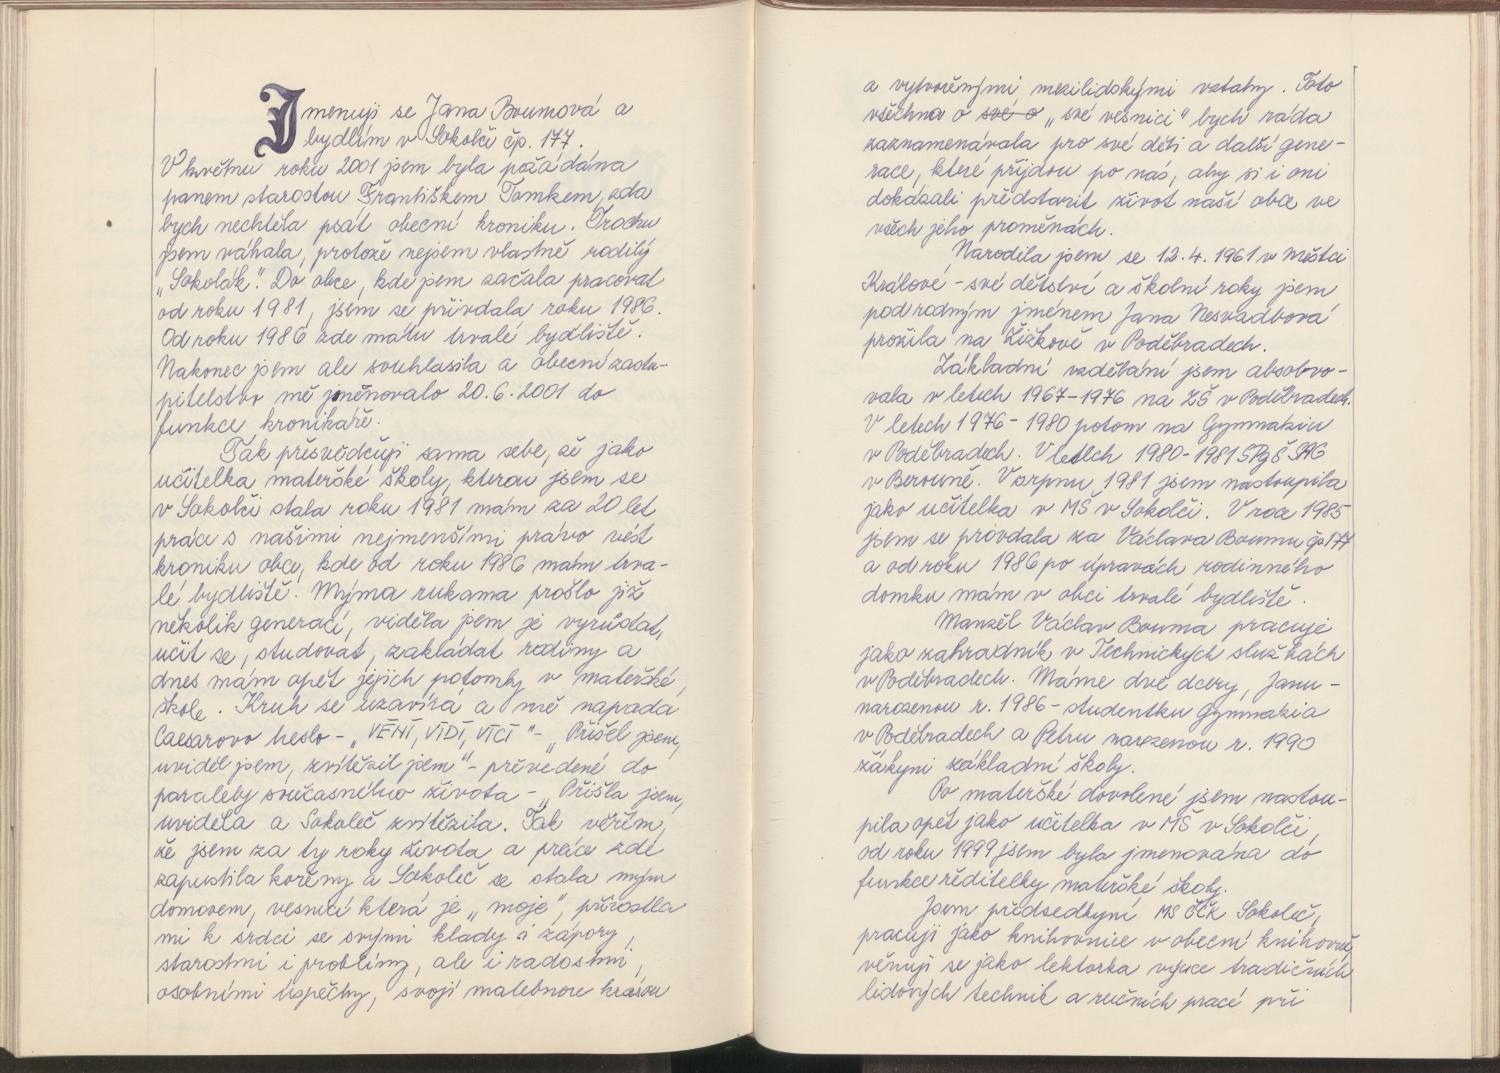 Jmenuji se Jana Boumová a
bydlím v Sokolči čp. 177.
V květnu roku 2001 jsem byla požádána
panem starostou Františkem Tomkem, zda
bych nechtěla psát obecní kroniku. Trochu
jsem váhala, protože nejsem vlastně rodilý
„Sokolák". Do obce, kde jsem začala pracovat
od roku 1981, jsem se přivdala roku 1986.
Od roku 1986 zde mám trvalé bydliště.
Nakonec jsem ale souhlasila a obecní zastu-
pitelstvo mě jmenovalo 20.6.2001 do
funkce kronikáře.
Tak přesvědčuji sama sebe, že jako
učitelka mateřské školy, kterou jsem se
v Sokolči stala roku 1981 mám za 20 let
práce s našimi nejmenšími právo vést
kroniku obce, kde od roku 1986 mám trva-
lé bydliště. Mýma rukama prošlo již
několik generací, viděla jsem je vyrůstat,
učit se, studovat, zakládat rodiny a
dnes mám opět jejich potomky v mateřské
škole. Kruh se uzavírá a mě napadá
Caesarovo heslo - „VĒNĪ, VĪDĪ, VĪCĪ" - „Přišel jsem,
uviděl jsem, zvítězil jsem" - převedené do
paraleby současného života - „Přišla jsem,
uviděla a Sokoleč zvítězila. Tak věřím,
že jsem za ty roky života a práce zde
zapustila kořeny a Sokoleč se stala mým
domovem, vesnicí která je „moje", přirostla
mi k srdci se svými klady i zápory,
starostmi i problémy, ale i radostmi,
osobními úspěchy, svojí malebnou krásou
a vytvořenými mezilidskými vztahy. Toto
všechno o své o „své vesnici" bych ráda
zaznamenávala pro své děti a další gene-
race, které přijdou po nás, aby si i oni
dokázali představit život naší obce ve
všech jeho proměnách.
Narodila jsem se 12.4.1961 v Městci
Králové - své dětství a školní roky jsem
pod rodným jménem Jana Nesvadbová
prožila na Žižkově v Poděbradech.
Základní vzdělání jsem absolvo-
vala v letech 1967-1976 na ZŠ v Poděbradech.
V letech 1976-1980 potom na Gymnaziu
v Poděbradech. V letech 1980-1981 SPgŠ
v Berouně. V srpnu 1981 jsem nastoupila
jako učitelka v MŠ v Sokolči. V roce 1985
jsem se provdala za Václava Boumu čp 177
a od roku 1986 po úpravách rodinného
domku mám v obci trvalé bydliště.
Manžel Václav Bouma pracuje
jako zahradník v Technických službách
v Poděbradech. Máme dvě dcery, Janu -
narozenou r. 1986 - studentku Gymnazia
v Poděbradech a Petru narozenou r. 1990
žákyni základní školy.
Po mateřské dovolené jsem nastou-
pila opět jako učitelka v MŠ v Sokolči,
od roku 1999 jsem byla jmenována do
funkce ředitelky mateřské školy.
Jsem předsedkyní MS ČČK Sokoleč,
pracuji jako knihovnice v obecní knihovně,
věnuji se jako lektorka výuce tradičních
lidových technik a ručních prací při